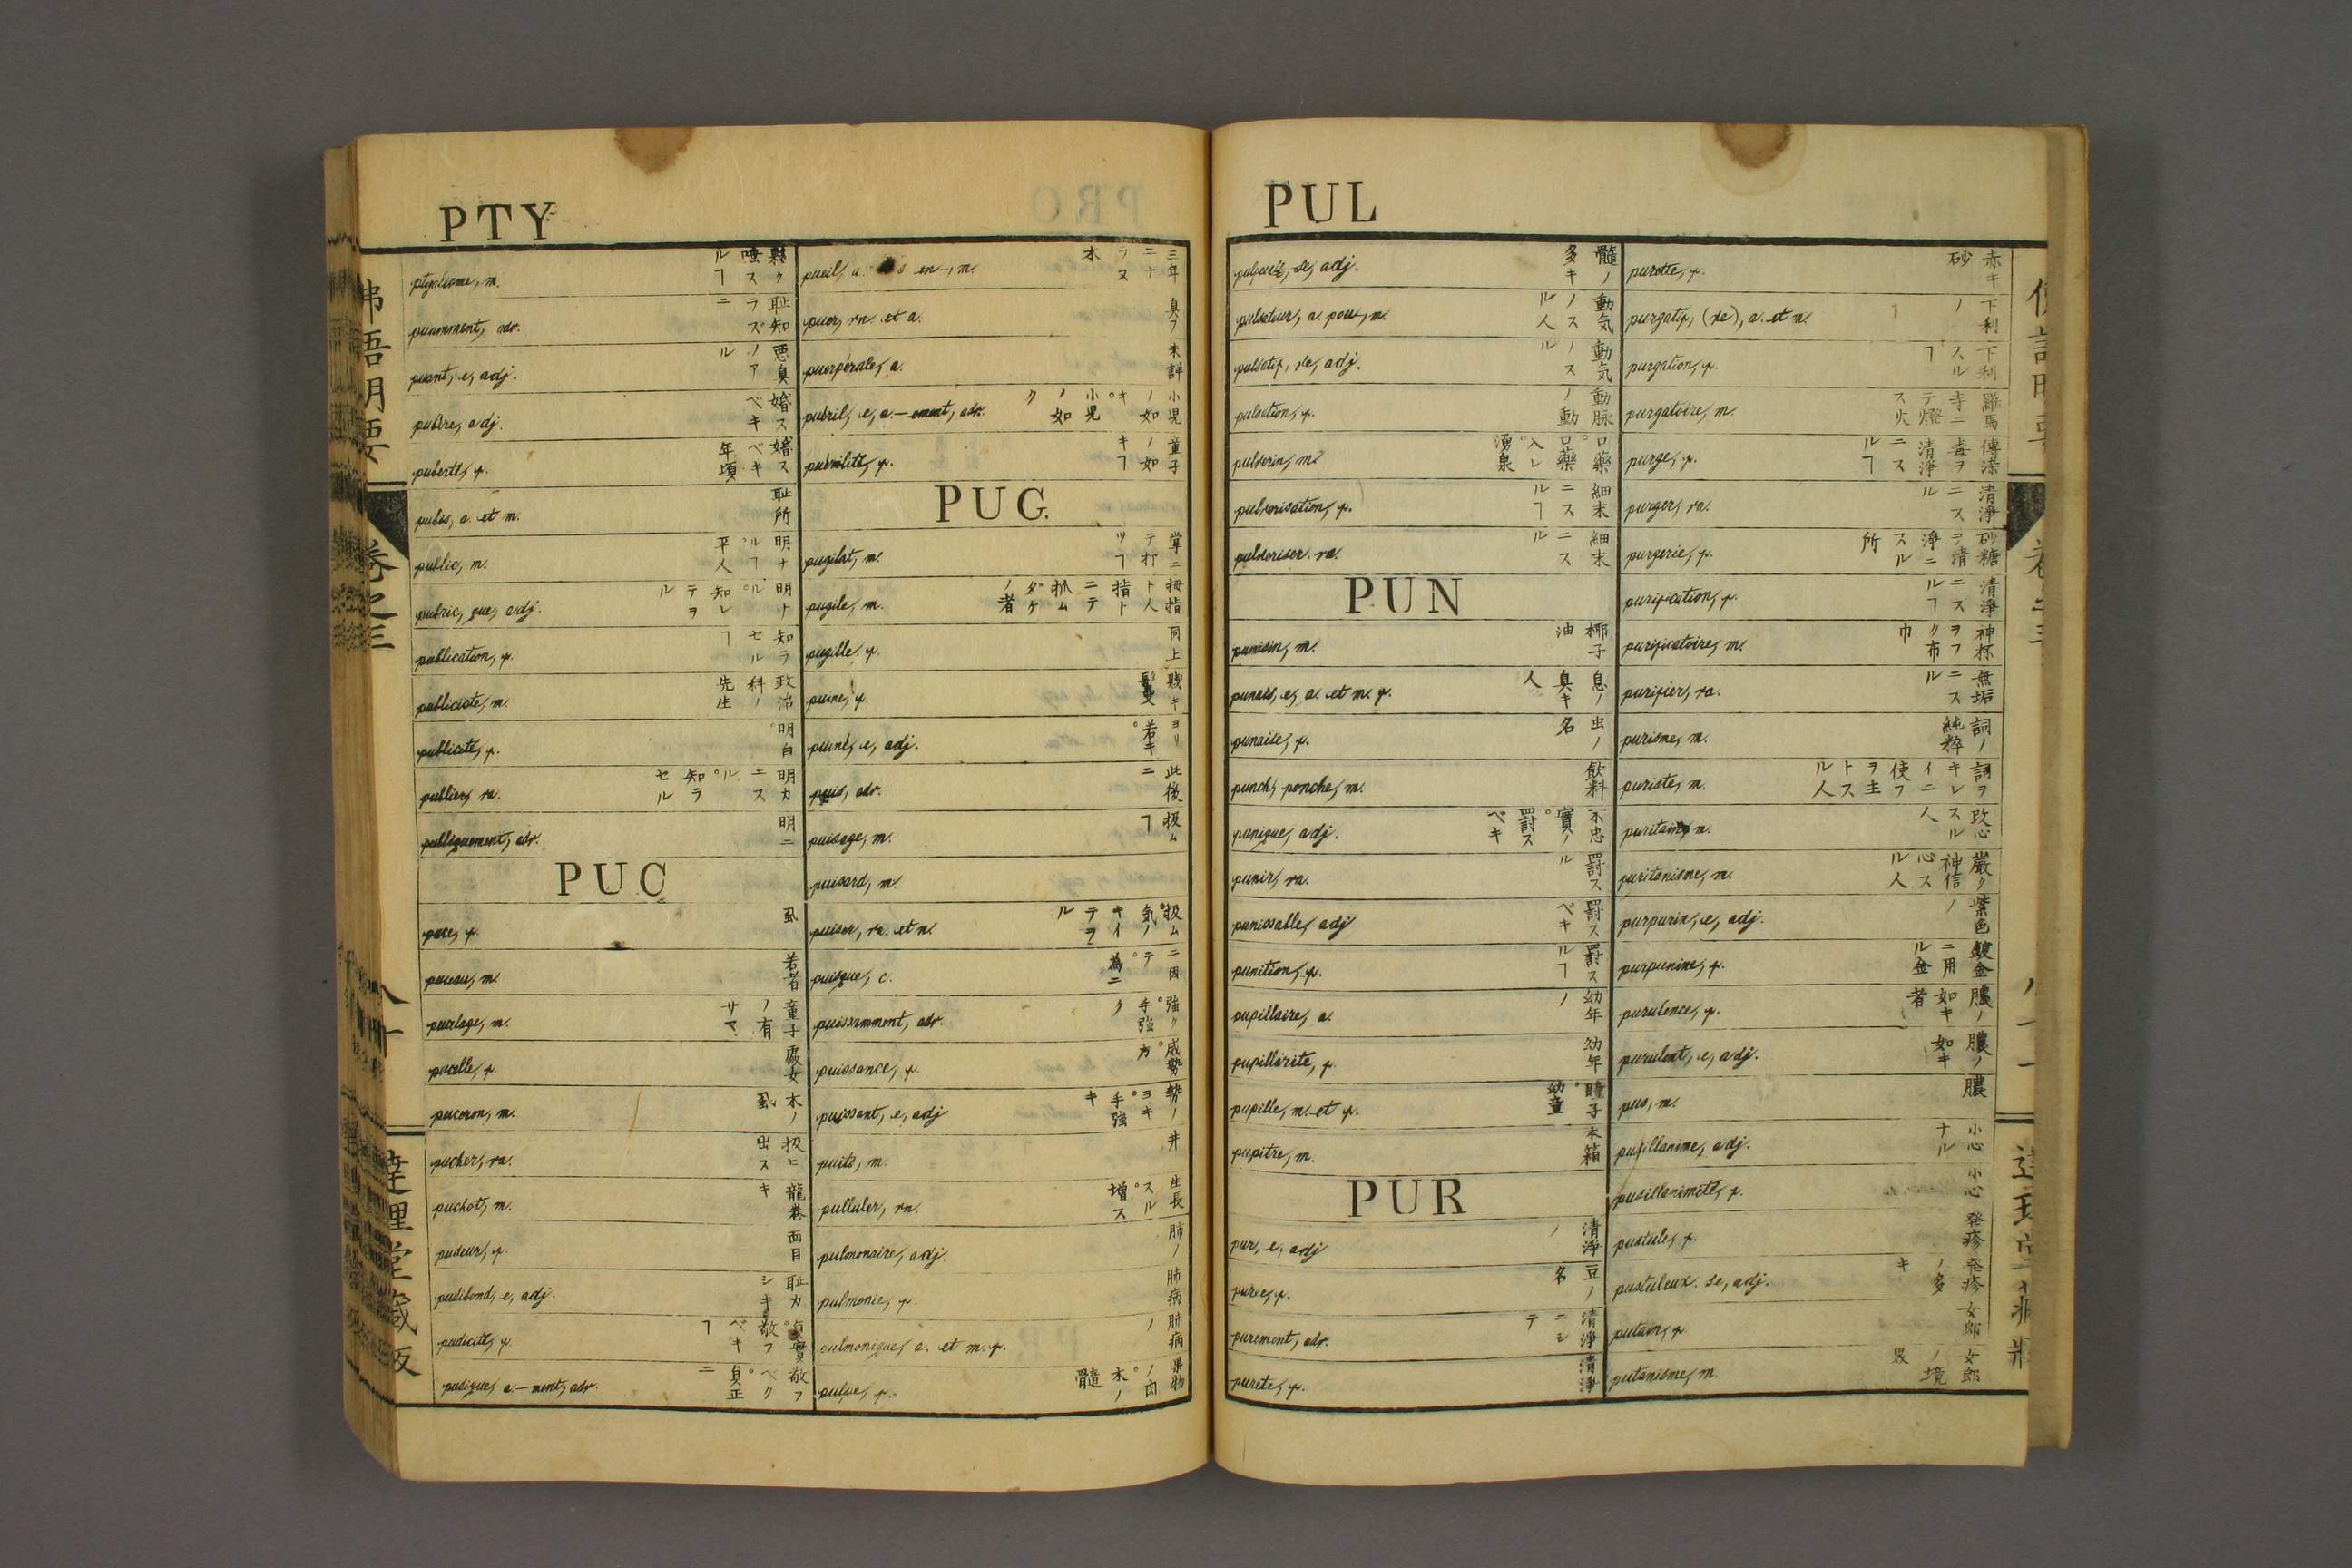 PTY
ptyalisme, m. 夥ク唾スルヿ
puamment, adv. 恥知ラズニ
puant, e, adj. 悪臭ノアル
pubère, adj. 婚スベキ
puberté, f. 婚スベキ年頃
pubis, a. et m. 恥所
public, m. 明ナルヿ。平人
public, que, adj. 明ナル。知レテヲル
publication, f. 知ラセルヿ
publiciste, m. 政治科ノ先生
publicité, f. 明白
publier, va. 明カニスル。知ラセル
publiquement, adv. 明ニ
PUC
puce, f. 虱
puceau, m. 若者
pucelage, m. 童子ノ有サマ
pucelle, f. 處女
puceron, m. 木ノ虱
pucher, va. 扱ヒ出ス
puchot, m. 龍巻キ
pudeur, f. 面目
pudibond, e, adj. 恥カシキ
pudicité, f. 貞實。敬フベキヿ
pudique, a.—ment, adv. 敬フベク。貞正ニ
puer, vn. et a. 臭フ
puerpérale, a. 未詳
puéril, e, a.—ement, adv. 小児ノ如キ。小児ノ如ク
puérilité, f. 童子ノ如キヿ
PUG
pugilat, m. 掌ニテ打ツヿ
pugile, m.
pugille, f. 同上
puine, f.
puiné, e, adj. ヨリ若キ
puis, adv. 此後ニ
puisage, m. 扱ムヿ
puisard, m.
puiser, va. et n.
puisque, c. ニ因テ。為ニ
puissamment, adv. 強ク。手強ク
puissance, f. 威勢。力
puissant, e, adj 勢ノヨキ。手強キ
puits, m. 井
pulluler, vn. 生長スル。増ス
pulmonaire, adj. 肺ノ
pulmonie, f. 肺病
pulmonique, a. et m. f. 肺病ノ
pulpe, f. 果物ノ肉。木ノ髓
PUL
pulpeux, se, adj. 髓ノ多キ
pulsateur, a. pous, m. 動気ノスル人
pulsatif, ve, adj. 動気ノスル
pulsation, f. 動脉ノ動
pulvérin, m. 口藥。口藥入レ。湧泉
pulvérisation, f. 細末ニスルヿ
pulvériser. va. 細末ニスル
PUN
punicin, m. 椰子油
punais, e, a. et m. f. 息ノ臭キ人
punaise, f. 虫ノ名
punch, ponche, m. 飲料
punique, adj. 不忠實ノ。罰スベキ
punir, va. 罰スル
punissable, adj 罰スベキ
punition, f. 罰スルヿ
pupillaire, a. 幼年ノ
pupillarité, f 幼年
pupille, m. et f. 瞳子。幼童
pupitre, m. 本箱
PUR
pur, e, adj 清浄ノ
purée, f. 豆ノ名
purement, adv. 清浄ニシテ
pureté, f. 清浄
purette, f. 赤キ砂
purgatif, (ve), a. et n. 下利ノ
purgation, f. 下利スルヿ
purgatoire, m. 羅馬寺ニテ燈ス火
purge, f. 傳染毒ヲ清浄ニスルヿ
purger, va. 清浄ニスル
purgerie, f. 砂糖ヲ清浄ニスル所
purification, f. 清浄ニスルヿ
purificatoire, m. 神杯ヲフク布巾
purifier, va. 無垢ニスル
purisme, m. 詞ノ純粹
puriste, m.
puritain, n. 改心スル人
puritanisme, m. 嚴ク神信心スル人
purpurin, e, adj. 紫色ノ
purpurine, f. 鍍金ニ用ル金
purulence, f. 膿ノ如キ者
purulent, e, adj. 膿ノ如キ
pus, m. 膿
pusillanime, adj. 小心ナル
pusillanimité, f. 小心
pustule, f. 発疹
pustuleux. se, adj. 発疹ノ多キ
putain, f 女郎
putanisme, m. 女郎ノ境界